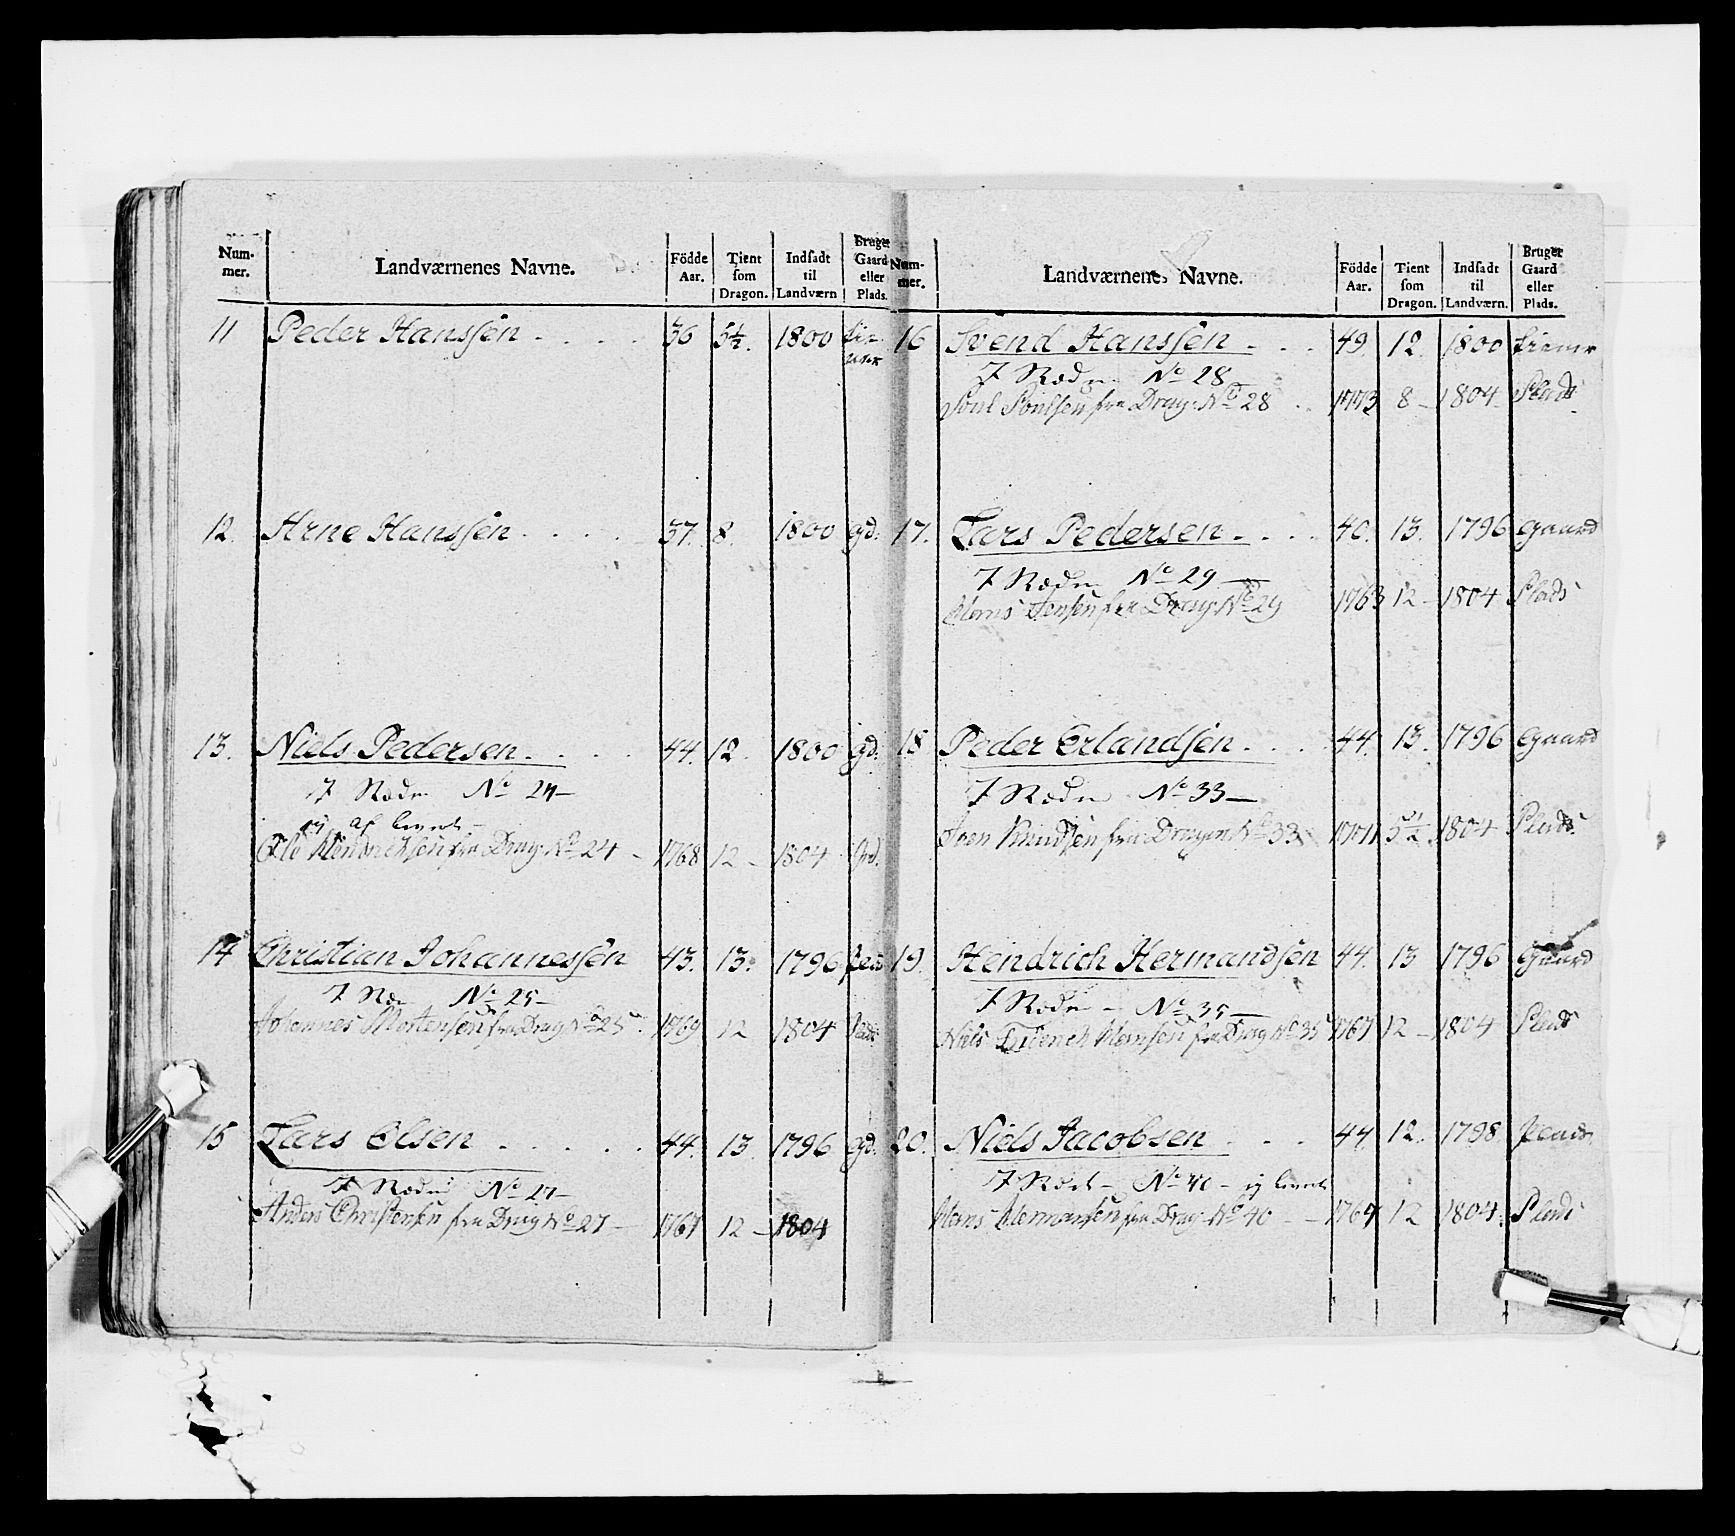 Num-mer. Landværnenes Navne. Födde Aar. Tient som Dragon. Indsadt til Landværn Bruger Gaard eller Plads.
11 Peder Hanssen 36 5½. 1800
12. Arne Hanssen 37. 8. 1800 gd.
13. Niels Pedersen 44. 12. 1800 gd.
No 24
Ole fra Drag: No 24 1768 12 1804 Grd.
14 Christian Johannessen 43. 13. 1796
No 25
Johannes Mortensen fra Drag No 25 1769 12 1804
15 Lars Olsen 44. 13 1796 gd.
No 27
Anders Christensen fra Drag No 27 1767 12 1804
Num-mer. Landværnenes Navne. Födde Aar. Tient som Dragon. Indsadt til Landværn. Bruger Gaard eller Plads.
16 Svend Hanssen 49. 12. 1800
No 28
Poul Poulsen fra Drag: No 28 1773 8 1804 Plads
17. Lars Pedersen 40. 13. 1796 Gaard
No 29
Hans Jensen fra Drag: No 29 1763 12 1804 Plads
18 Peder Erlandsen 44. 13. 1796 Gaard
No 33
Knudsen fra Dragon No 33 5½ 1804 Plads
19. Hendrich Hermandsen 44. 13 1796 Gaard
No 35
Niels Hansen fra Drag No 35 1767 12 1804 Plads
20. Niels Jacobsen 44 12. 1798 Plads
No 40
Hans Hermansen fra Drag: No 40 1767 12 1804 Plads